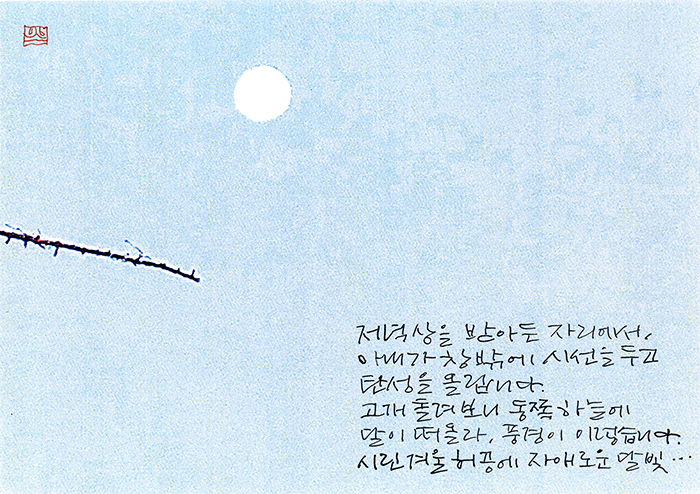 저녁상을 받아든 자리에서,
아내가 창밖에 시선을 두고
탄성을 올립니다.
고개 돌려보니 동쪽 하늘에
달이 떠올라, 풍경이 이렇습니다.
시린 겨울 허공에 자애로운 달빛…